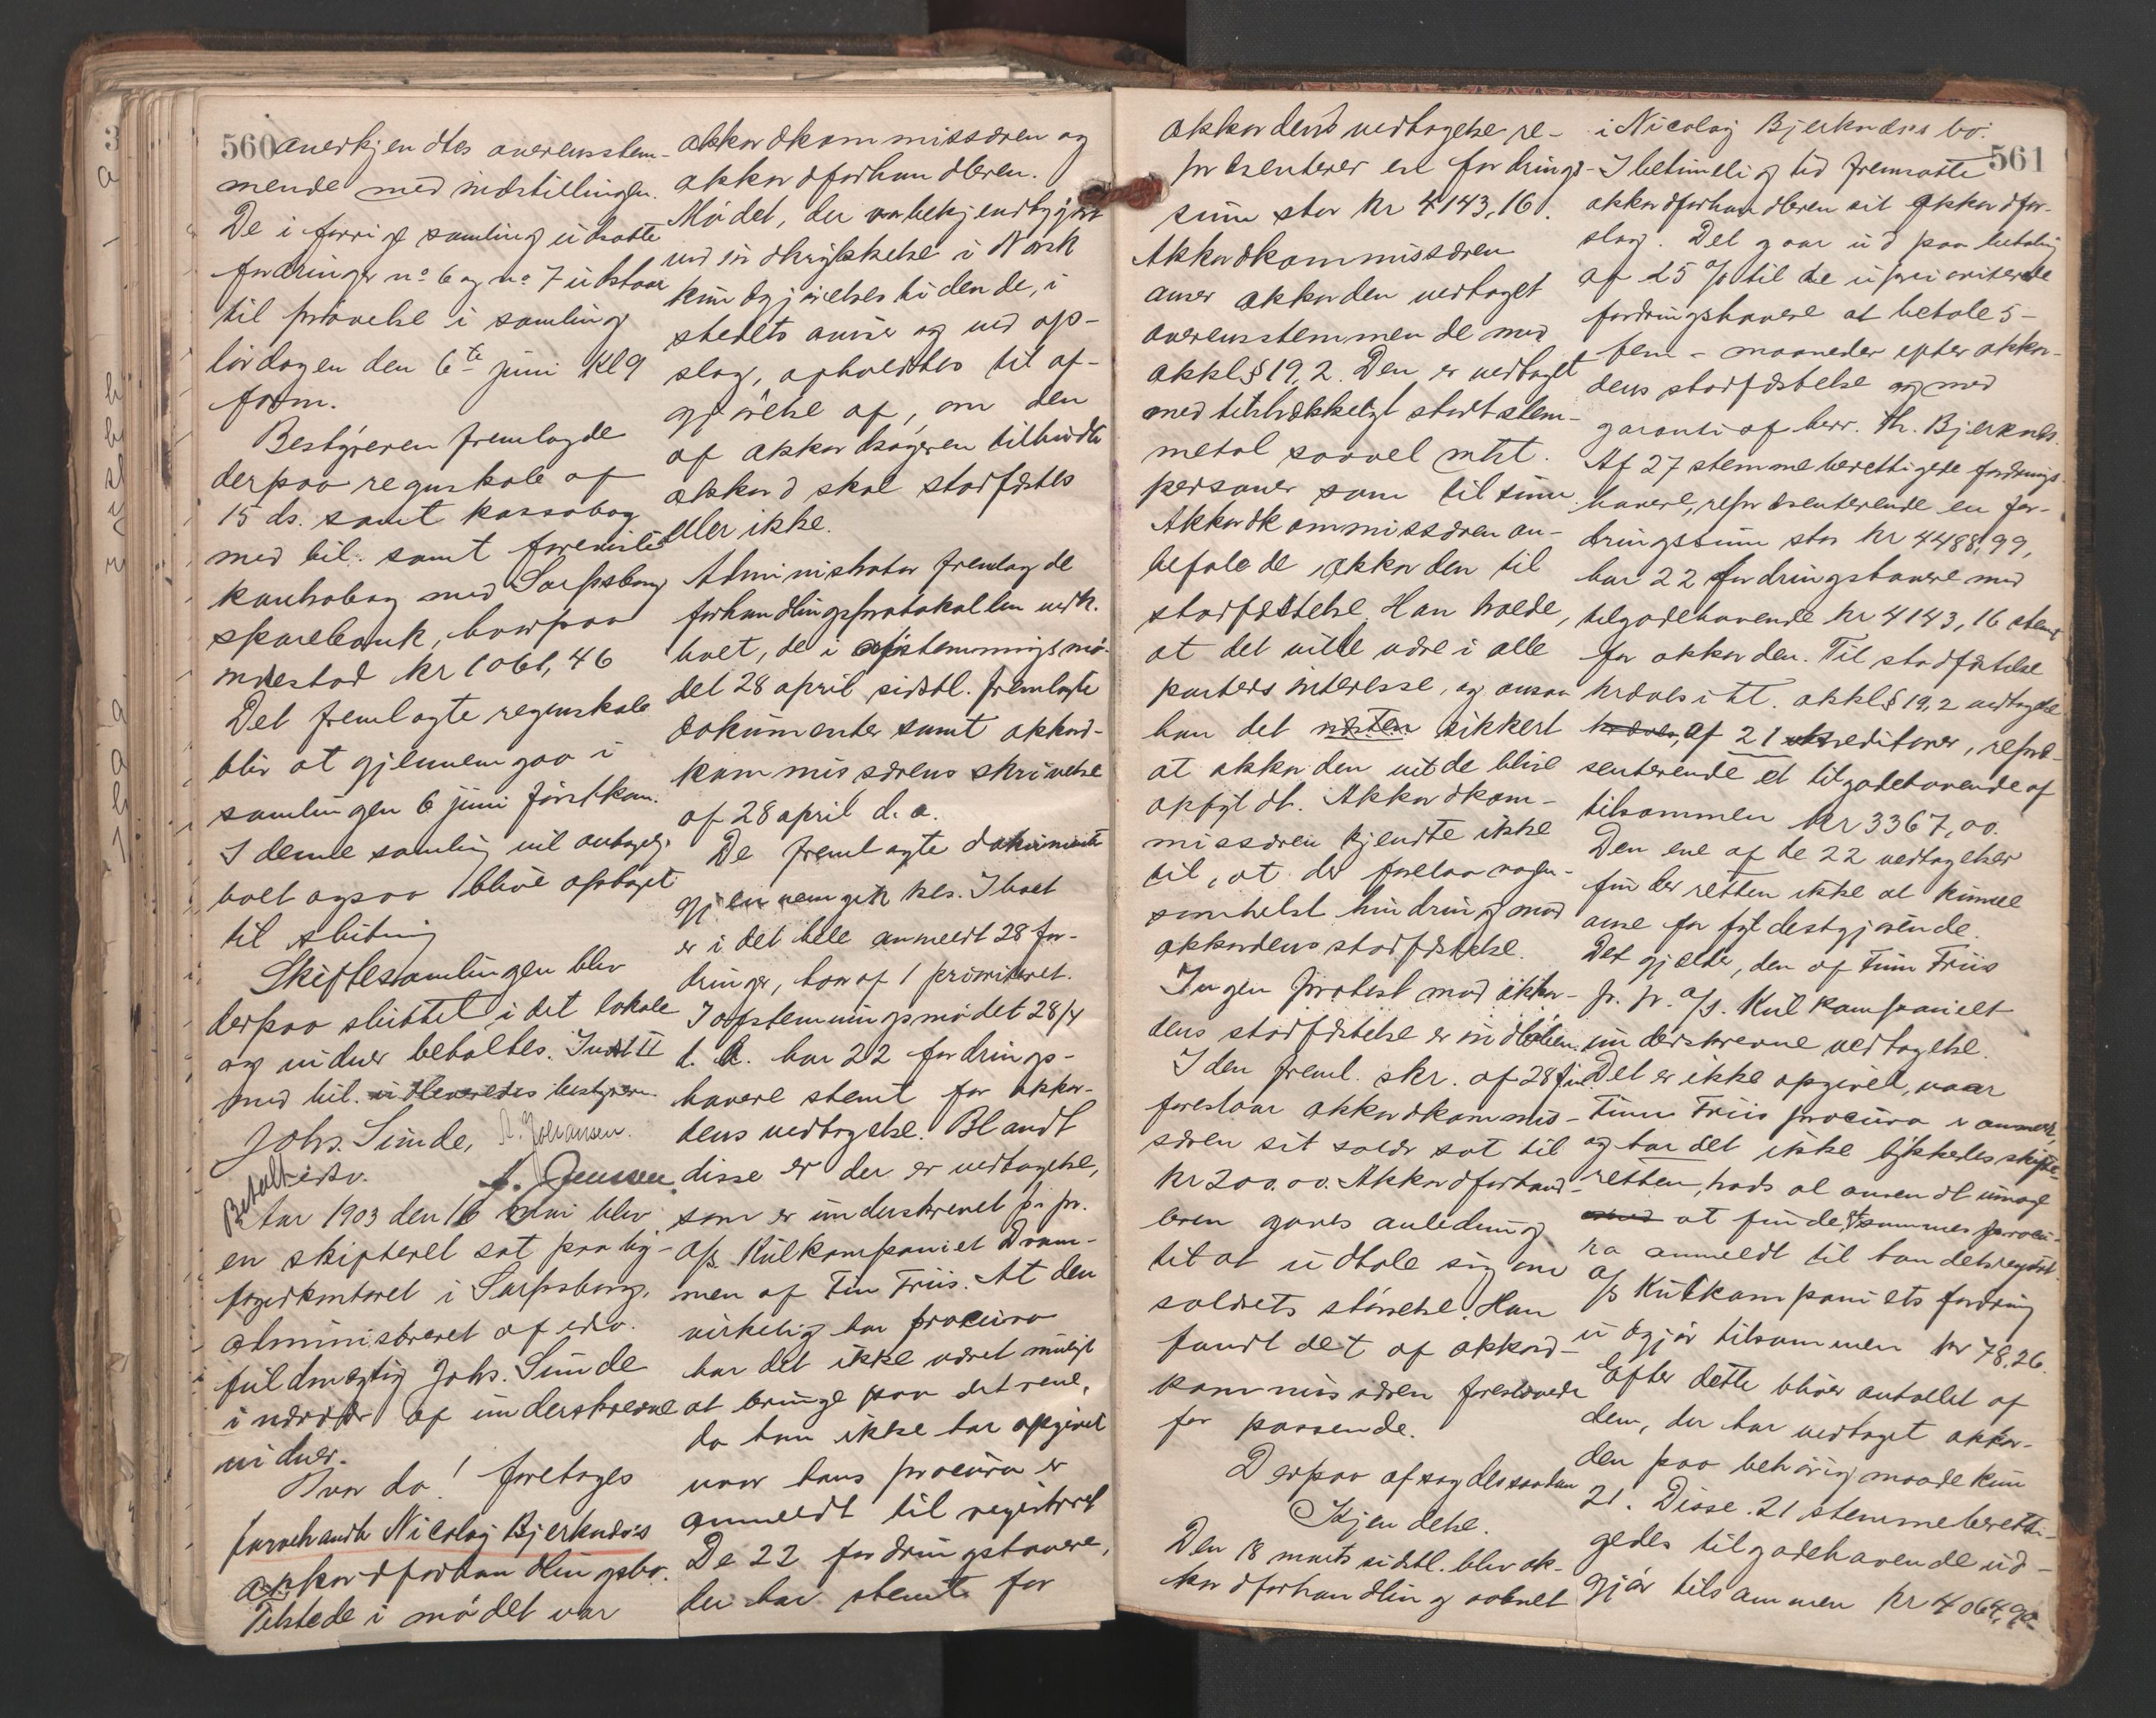 560
anerkjendtes overensstem-
mende med indstillingen.
De i forrige samling udsatte
fordringer no 6 og no 7 udstaar
til prøvelse i samling
lørdagen den 6te juni kl 9
form.
Bestyreren fremlagde
derpaa regnskab af
15 ds. samt kassabog
med bil. samt foreviste
kontrabog med Sarpsborg
sparebank, hvorpaa
indestod kr 1061,46
Det fremlagte regnskab
blir at gjennemgaa i
samlingen 6 juni førstkom.
I denne samling vil antagelig
boet ogsaa blive optaget
til slutning
Skiftesamlingen blev
derpaa sluttet, i det lokale
og vidner beholdtes. Indst II
med bil. udleveredes bestyreren.
Johs. Sunde, A. Johansen.
edsv. A. Jensen.
Betalt
Aar 1903 den 16 mai blev
en skifteret sat paa by-
fogedkontoret i Sarpsborg,
administreret af edsv.
fuldmægtig Johs. Sunde
i nærvær af underskrevne
vidner.
Hvor da! foretages
farvehandler Nicolay Bjerknæs's
akkordforhandlingsbo.
Tilstede i mødet var
akkordkommissæren og
akkordforhandleren.
Mødet, der var bekjendtgjort
ved indrykkelse i Norsk
kundgjørelsestidende, i
stedets avis og ved op-
slag, afholdtes til af-
gjørelse af, om den
af akkordsøgeren tilbudte
akkord skal stadfæstes
eller ikke.
Administrator fremlagde
forhandlingsprotokollen vedk.
boet, de i afstemningsmø-
det 28 april sidstl. fremlagte
dokumenter samt akkord-
kommissærens skrivelse
af 28 april d. a.
De fremlagte dokumenter
gjennemgikkes. I boet
er i det hele anmeldt 28 for-
dringer, hvoraf 1 prioriteret.
I afstemningsmødet 28/4
d. A. har 22 fordrings-
havere stemt for akkor-
dens vedtagelse. Blandt
disse er der en vedtagelse,
som er underskrevet pr. pr.
A/S. Kulkompaniet Dram-
men af Finn Friis. At den
virkelig har procura
har det ikke været muligt
at bringe paa det rene,
da han ikke har opgivet
naar hans procura er
anmeldt til registret
De 22 fordringshavere,
der har stemt for
akkordens vedtagelse re-
præsenterer en fordrings-
sum stor kr 4143,16.
Akkordkommissæren
anser akkorden vedtaget
overensstemmende med
akkl § 19,2. Den er vedtaget
med tilstrækkeligt stort stem-
metal saavel mht.
personer som til sum.
Akkordkommissæren an-
befalede akkorden til
stadfæstelse. Han troede,
at det vilde være i alle
parters interesse, og ansaa
han det næsten sikkert
at akkorden vilde blive
opfyldt. Akkordkom-
missæren kjendte ikke
til, at der forelaa nogen-
somhelst hindring mod
akkordens stadfæstelse.
Ingen protest mod akkor-
dens stadfæstelse er indløben.
I den freml. skr. af 28 f.m.
foreslaar akkordkommis-
særen sit salær sat til
kr 200.00. Akkordforhand-
leren gaves anledning
til at udtale sig om
salærets størrelse. Han
fandt det af akkord-
kommissæren foreslaaede
for passende.
Derpaa afsagdes saadan
Kjendelse.
Den 18 marts sidstl. blev ak-
kordforhandling aabnet
561
i Nicolay Bjerknæs's bo.
I betimelig tid fremsatte
akkordforhandleren sit akkordfor-
slag. Det gaar ud paa betaling
af 25 % til de upriroriterede
fordringshavere at betale 5-
fem - maaneder efter akkor-
dens stadfæstelse og med
garanti af herr. Th. Bjerknæs.
Af 27 stemmeberettigede fordrings-
havere, repræsenterende en for-
dringssum stor kr 4488,99,
har 22 fordringshavere med
tilgodehavende kr 4143,16 stemt
for akkorden. Til stadfæstelse
kræves i ht. akkl § 19,2 vedtagelse
kræves, af 21 kreditorer, repræ-
senterende et tilgodehavende af
tilsammen kr 3367,00.
Den ene af de 22 vedtagelser
finder retten ikke at kunne
anse for fyldestgjørende.
Det gjælder, den af Finn Friis
pr. pr. A/S. Kulkompaniet
underskrevne vedtagelse.
Det er ikke opgivet, naar
Finn Friis procura er anmeldt,
og har det ikke lykkedes skifte-
retten, trods al anvendt umage
at finde sammes procu-
ra anmeldt til handelsregistret.
A/S Kulkompaniets fordring
udgjør tilsammen kr 78,26.
Efter dette bliver antallet af
dem, der har vedtaget akkor-
den paa behørig maade kun
21. Disse 21 stemmeberetti-
gedes tilgodehavende ud-
gjør tilsammen kr 4064,90